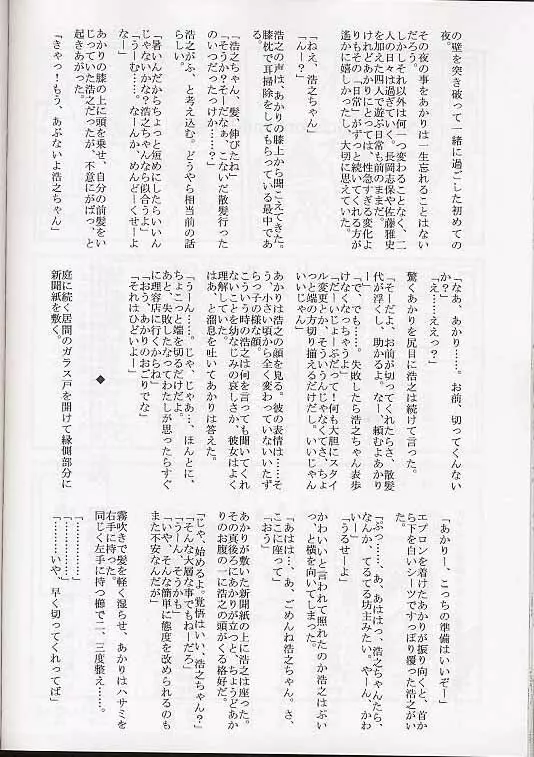 の壁を突き破って一緒に過ごした初めての
夜。
その夜の事をあかりは一生忘れることはない
だろう。
しかしそれ以外は何一つ変わることなく、二
人の日々は過ぎていく。長岡志保や佐藤雅史
を加えた四人で遊ぶ日常も前のままだ。
けれどあかりにとっては、性急すぎる変化よ
りもその「日常」がずっと続いてくれる方が
遙かに嬉しかったし、大切に思えていた。
「ねえ、浩之ちゃん」
「んー？」
浩之の声は、あかりの膝上から聞こえてきた。
膝枕で耳掃除をしてもらっている最中であ
る。
「浩之ちゃん、髪、伸びたね」
「そうか？そーだなぁ、こないだ散髪行った
のいつだったっけか……？」
浩之がふ、と考え込む。どうやら相当前の話
らしい。
「暑いんだからちょっと短めにしたらいいん
じゃないかな？浩之ちゃんなら似合うよ」
「うーむ……。なーんか、めんどくせーよ
なー」
あかりの膝の上に頭を乗せ、自分の前髪をい
じっていた浩之だったが、不意にがばっ、と
起きあがった。
「きゃっ！もう、あぶないよ浩之ちゃん」
「なあ、あかり……。お前、切ってくんない
か？」
「え……ええっ？」
驚くあかりを尻目に浩之は続けて言った。
「そーだよ、お前が切ってくれたらさ、散髪
代が浮くし、助かるよ。なー、頼むよあかり
「で、でも……。失敗したら浩之ちゃん表歩
けなくなっちゃうよ」
「だーいじょーぶだって！何も大胆にスタイ
ル変更とか、そういうんじゃなくてさ、ちょ
っと端の方切り揃えるだけだし。いいじゃん
いいじゃん」
あかりは浩之の顔を見る。彼の表情は……そ
う、小さい頃から全く変わっていないいたず
らっ子の様な顔。
こういう時の浩之は何を言っても聞いてくれ
ないことを幼なじみの哀しさか、彼女はよく
理解していた。
はあ、と溜息を吐いてあかりは答えた。
「うーん……。じゃ、じゃあ…、ほんとに、
ちょこっと端を切るだけだよ。
あと、失敗したなってわたしが思ったらすぐ
に理容店に行くからね」
「おう、あかりのおごりでな」
「それはひどいよー」
◆
庭に続く居間のガラス戸を開けて縁側部分に
新聞紙を敷く。
「あかりー、こっちの準備はいいぞー」
エプロンを着けたあかりが振り向くと、首か
ら下を白いシーツですっぽり覆った浩之がい
た。
「ぷっ……。あ、あははっ、浩之ちゃんたら、
なんか、てるてる坊主みたい。やーん、かわ
いー」
「うるせーよ」
かわいいと言われて照れたのか浩之はぷい
っ、と横を向いてしまった。
「あはは…あ、ごめんね浩之ちゃん。さ、
ここに座って」
「おう」
あかりが敷いた新聞紙の上に浩之は座った。
その真後ろにあかりが立つと、ちょうどあか
りのお腹の上に浩之の頭がくる格好だ。
「じゃ、始めるよ。覚悟はいい、浩之ちゃん？」
「そんな大層な事でもねーだろ」
「うーん、そうかも」
「いや、そんな簡単に態度を改められるのも
また不安なんだが」
霧吹きで髪を軽く湿らせ、あかりはハサミを
右手に持った。
同じく左手に持つ櫛で二、三度整え……。
「…………」
「…………」
「……いや、早く切ってくれってば」